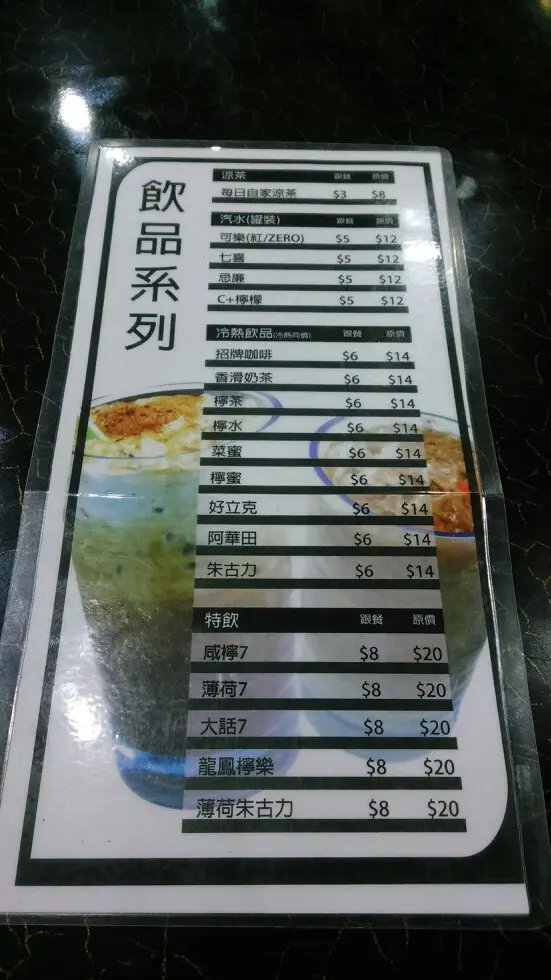 飲品系列
涼茶 跟餐 原價
每日自家涼茶 $3 $8
汽水(罐裝) 跟餐 原價
可樂(紅/ZERO) $5 $12
七喜 $5 $12
忌廉 $5 $12
C+檸檬 $5 $12
冷熱飲品(冷熱同價) 跟餐 原價
招牌咖啡 $6 $14
香滑奶茶 $6 $14
檸茶 $6 $14
檸水 $6 $14
菜蜜 $6 $14
檸蜜 $6 $14
好立克 $6 $14
阿華田 $6 $14
朱古力 $6 $14
特飲 跟餐 原價
咸檸7 $8 $20
薄荷7 $8 $20
大話7 $8 $20
龍鳳檸樂 $8 $20
薄荷朱古力 $8 $20